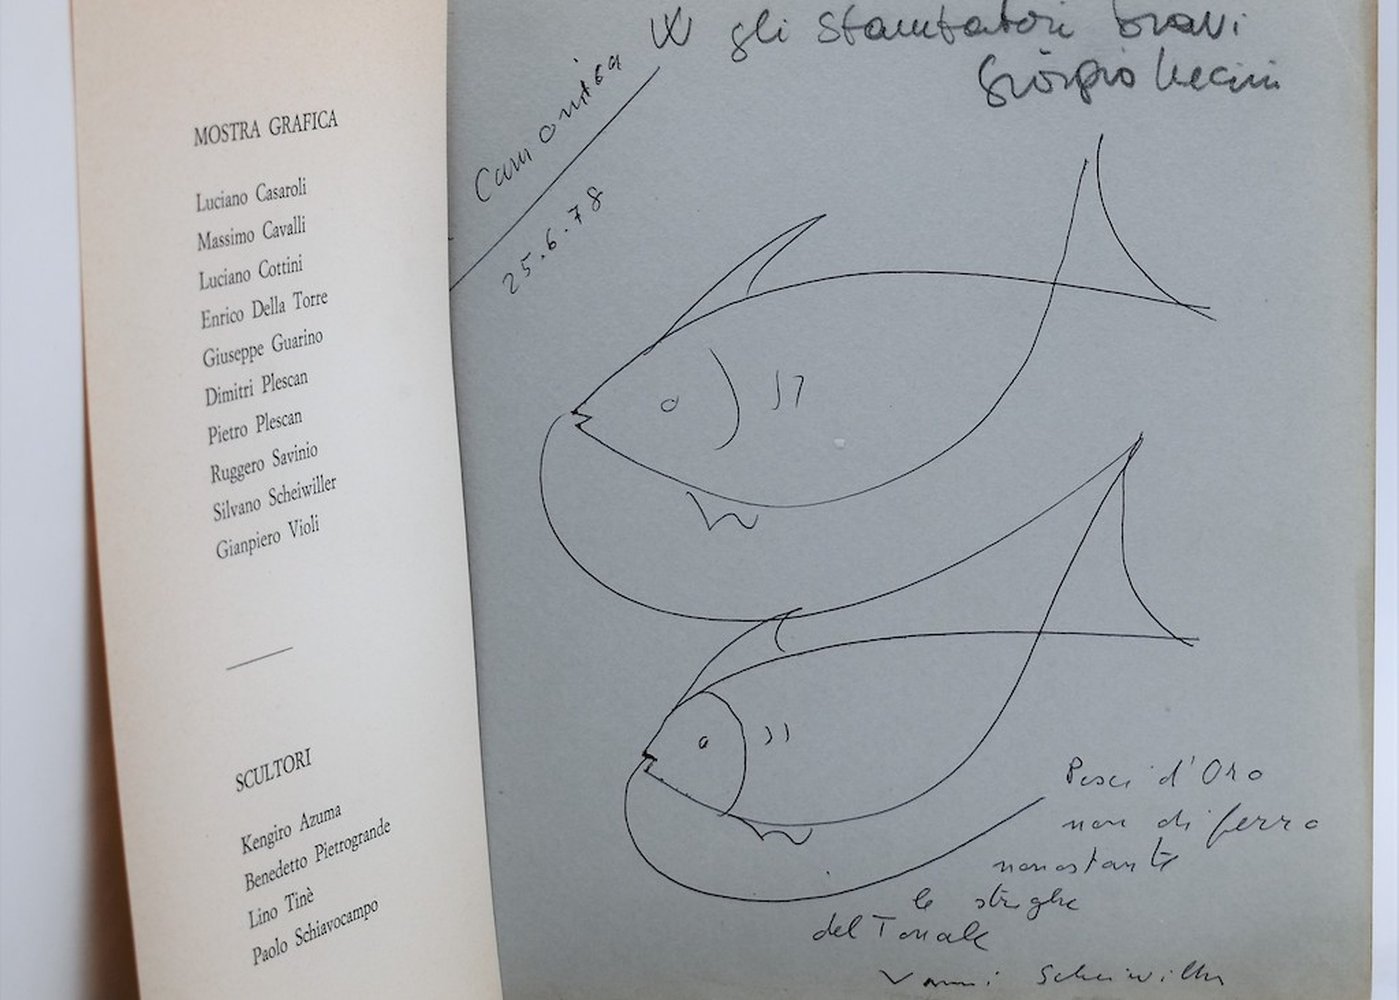 MOSTRA GRAFICA
Luciano Casaroli
Massimo Cavalli
Luciano Cottini
Enrico Della Torre
Giuseppe Guarino
Dimitri Plescan
Pietro Plescan
Ruggero Savinio
Silvano Scheiwiller
Gianpiero Violi
SCULTORI
Kengiro Azuma
Benedetto Pietrogrande
Lino Tinè
Paolo Schiavocampo
W gli stampatori bravi
Giorgio
Camonica
25.6.78
Pesci d'Oro
non di ferro
nonostante
le streghe
del Tonale
Vanni Scheiwiller